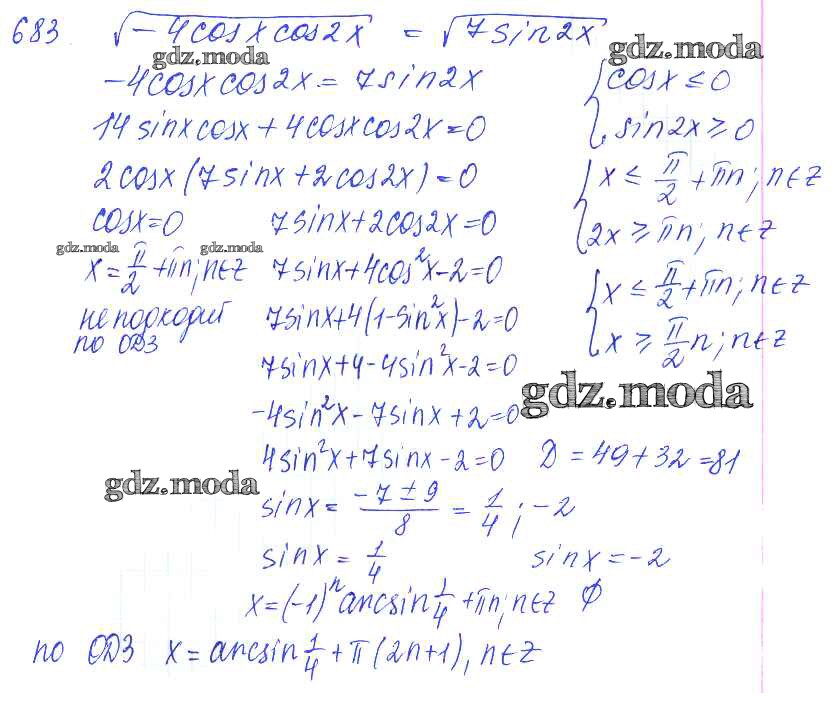 683 √(-4cosxcos2x) = √(7sin2x)
gdz.moda gdz.moda
-4cosxcos2x = 7sin2x { cosx ≤ 0
14sinxcosx + 4cosxcos2x = 0 sin2x ≥ 0
2cosx(7sinx + 2cos2x) = 0 { x ≤ π/2 + πn; n∈Z
cosx=0 7sinx+2cos2x=0 2x ≥ πn; n∈Z
gdz.moda gdz.moda
x = π/2 + πn; n∈Z 7sinx+4cos²x-2=0 { x ≤ π/2 + πn; n∈Z
не подходит 7sinx+4(1-sin²x)-2=0 x ≥ π/2 n; n∈Z
по ОДЗ
7sinx+4-4sin²x-2=0
gdz.moda
-4sin²x-7sinx+2=0
4sin²x+7sinx-2=0 D = 49+32=81
gdz.moda
sinx = (-7±9)/8 = 1/4; -2
sinx = 1/4 sinx = -2
x=(-1)ⁿarcsin1/4+πn; n∈Z ∅
по ОДЗ x = arcsin1/4 + π(2n+1), n∈Z